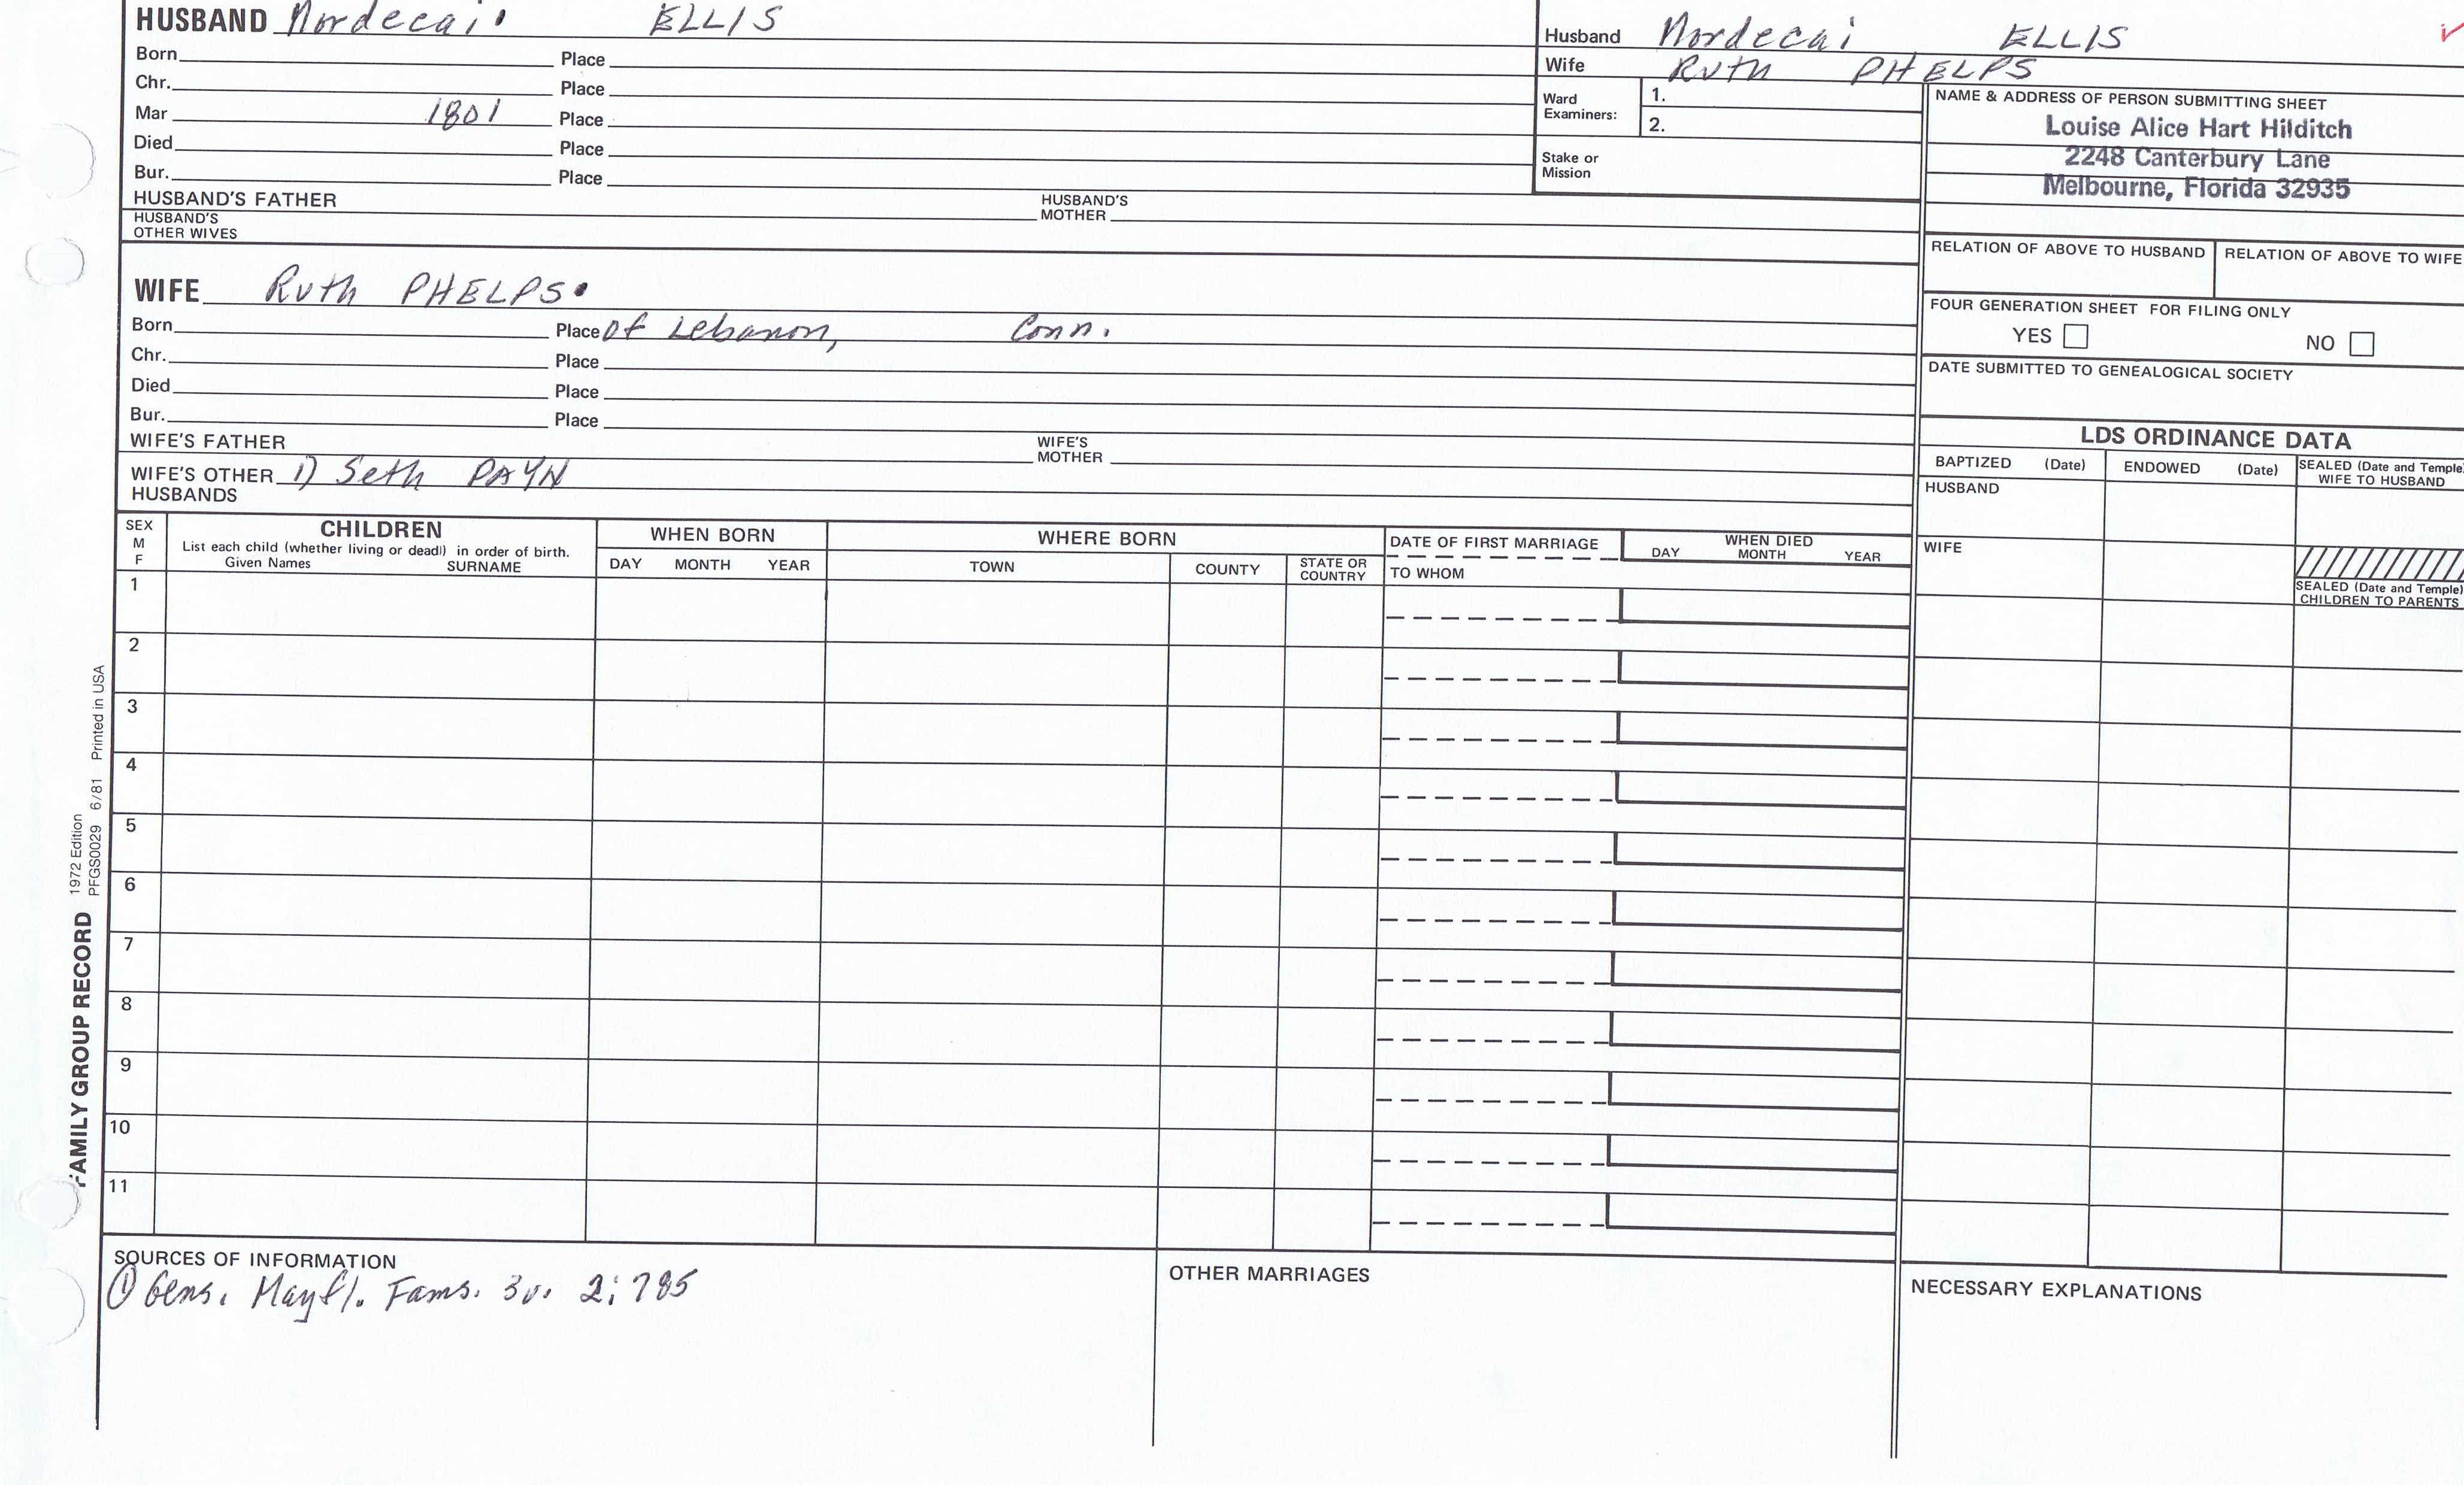 HUSBAND Mordecai ELLIS
Born Place
Chr. Place
Mar 1801 Place
Died Place
Bur. Place
HUSBAND'S FATHER HUSBAND'S MOTHER
HUSBAND'S OTHER WIVES
WIFE Ruth PHELPS
Born Place of Lebanon, Conn.
Chr. Place
Died Place
Bur. Place
WIFE'S FATHER WIFE'S MOTHER
WIFE'S OTHER HUSBANDS 1) Seth PAYN
Husband Mordecai ELLIS
Wife Ruth PHELPS
Ward Examiners: 1.
2.
Stake or Mission
NAME & ADDRESS OF PERSON SUBMITTING SHEET
Louise Alice Hart Hilditch
2248 Canterbury Lane
Melbourne, Florida 32935
RELATION OF ABOVE TO HUSBAND RELATION OF ABOVE TO WIFE
FOUR GENERATION SHEET FOR FILING ONLY
YES NO
DATE SUBMITTED TO GENEALOGICAL SOCIETY
LDS ORDINANCE DATA
BAPTIZED (Date) ENDOWED (Date) SEALED (Date and Temple) WIFE TO HUSBAND
HUSBAND
WIFE
SEALED (Date and Temple) CHILDREN TO PARENTS
SEX M F
CHILDREN
List each child (whether living or dead) in order of birth.
Given Names SURNAME
WHEN BORN
DAY MONTH YEAR
WHERE BORN
TOWN COUNTY STATE OR COUNTRY
DATE OF FIRST MARRIAGE
TO WHOM
WHEN DIED
DAY MONTH YEAR
1
2
3
4
5
6
7
8
9
10
11
FAMILY GROUP RECORD
1972 Edition
PFGS0029 6/81 Printed in USA
SOURCES OF INFORMATION
① Gens. Mayfl. Fams. 3v. 2:785
OTHER MARRIAGES
NECESSARY EXPLANATIONS